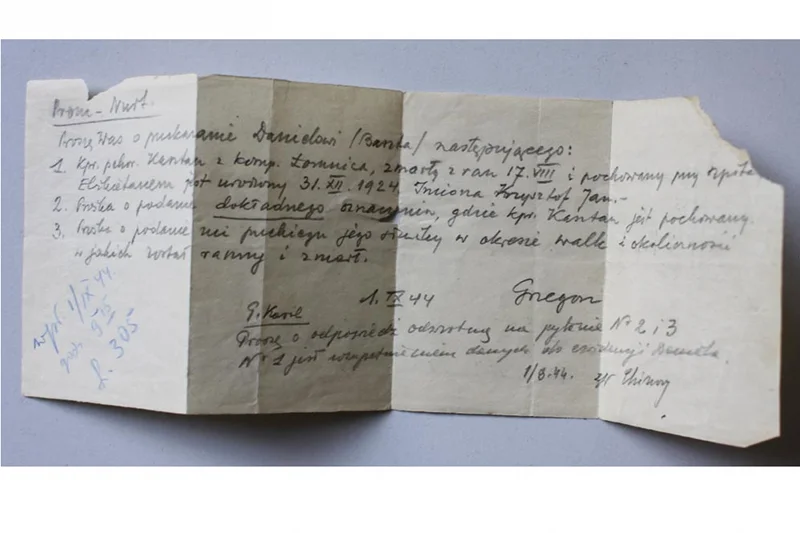 Prom – Nurt.
Proszę Was o przekazanie Danielowi /Baszta/ następującego:
1. Kpr. pchor. Kantan z komp. Łomnica, zmarły z ran 17. VIII i pochowany przy szpit.
Elżbietanek jest urodzony 31. XII. 1924. Imiona Krzysztof Jan.–
2. Prośba o podanie dokładnego oznaczenia, gdzie kpr. Kantan jest pochowany.
3. Prośba o podanie mi przebiegu jego służby w okresie walk i okoliczności
w jakich został ranny i zmarł.
1. IX 44 Grzegorz
wpł. 1/IX 44
godz. 9 15
L. 305
G. Karol
Proszę o odpowiedź odwrotną na pytanie Nº 2 i 3
Nº 1 jest uzupełnieniem danych do ewidencji Daniela.
1/9.44.